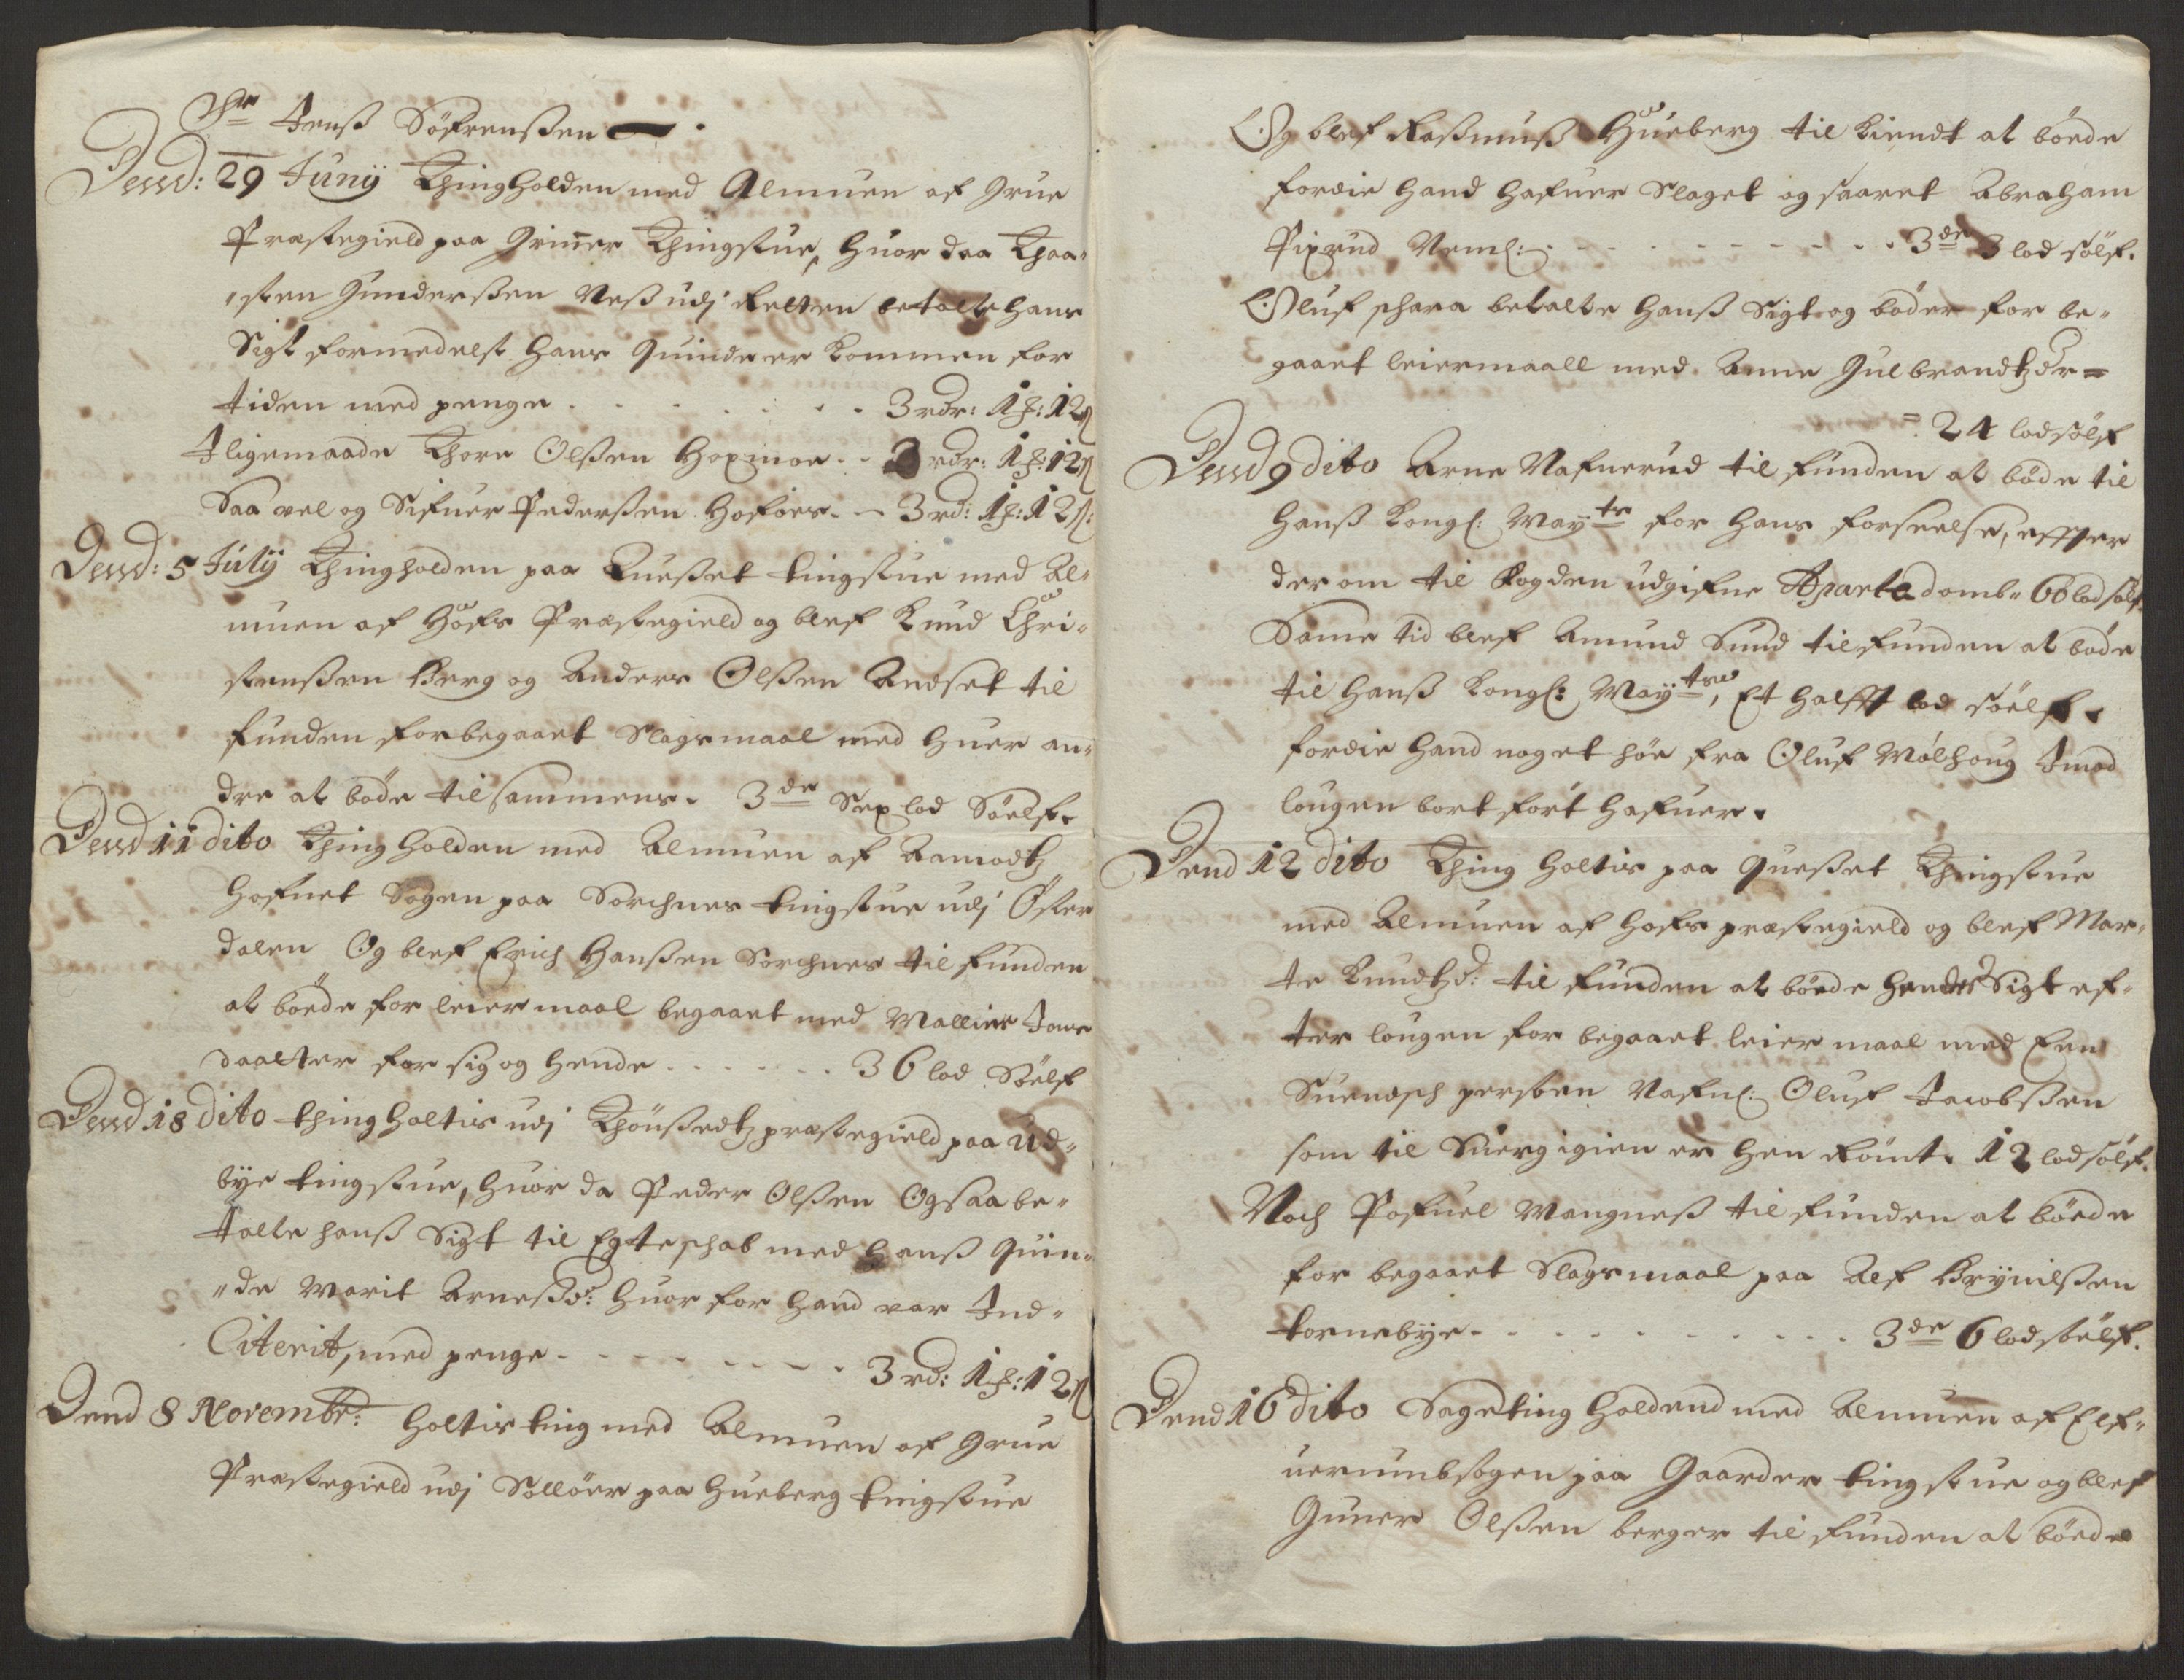 Hr Jenß Söfrenßen
Dend: 29 Junij Thingholden med Almuen af Grue
Præstegield paa Grinner Thingstue, huor daa Thaa¬
sten Gunderßen Neß udj Retten betalte hans
Sigt formedelst hans Quinde er kommen for
tiden med penge - - - 3 rdr: 1 ƶ: 12 ß
Iligemaade Thore Olßen Hoxmoe - - 3 rdr: 1 ƶ: 12 ß
Saa vel og Sifuer Pederßen Hofoes - - 3 rd: 1 ƶ: 12 ß:
Dend: 5 Julij Thingholden paa Queßet tingstue med Al¬
muen af Hofs Præstegield og blef Knud Chri¬
stenßen Berg og Anders Olßen Andset til
funden for begaaet Slagsmaal med huer an¬
dre at bøde tilsammens. 3de Sex lod Sölf.
Dend 11 dito Thing holden med Almuen af Aamodtz
Hofuet Sogen paa Sorchnes tingstue udj Öster
dalen Og blef Erich Hanßen Sorchnes til funden
at böede for leiermaal begaaet med Malline Jons
daatter for sig og hende - - - 36 lod Sölf
Dend 18 dito thing holtis udj Thönßedtz præstegield paa Ud¬
bye tingstue, huor da Peder Olßen Ogsaa be¬
talte hanß Sigt til Egteschab med hanß Quin¬
de Marit Arneßdr: huor for hand var Ind¬
Citerit, med penge - - - 3 rd: 1 ƶ: 12 ß
Dend 8 Novembr: holtis ting med Almuen af Grue
Præstegield udj Sollöer paa Hueberg tingstue
Og blef Raßmuß Hueberg til kiendt at böede
fordie hand hafuer Slaget og saaret Abraham
Pixrud Neml: - - - 3de 3 lod sölf.
Oluf schara betalte hanß Sigt og böder for be¬
gaaet leiermaall med Anne Gulbrandtzdr =
= 24 lod sölf
Dend 9 dito Arne Nafnerud til funden at böde til
hanß kongl: Maytz for hans forseelse, effter
der om til fogden udgifne Aparte domb 66 lod sölf.
Same tid blef Amund Sund tilfunden at böde
til hanß kongl: Mayts, Et halfft lod söelf.
fordie hand noget höe fra Oluf Mölhoug Imod
lougen bort fört hafuer.
Dend 12 dito Thing holtis paa Queßet Thingstue
med Almuen af Hofs præstegield og blef Mar¬
te Knudtzd: til funden at böede hendes Sigt ef¬
ter lougen for begaaet leiermaal med Een
Suendsch persoen Nafnl: Oluf Jacobßen
som til Suerg igien er hen Römt. 12 lod sölf.
Noch Pofuel Mangneß til funden at böede
for begaaet Slagsmaal paa Alf Brynilßen
tornebye - - - 3de 6 lod söelf.
Dend 16 dito Sageting holdend med Almuen af Elf¬
uerumbsogen paa Gaarder tingstue og blef
Guner Olßen berger til funden at böede